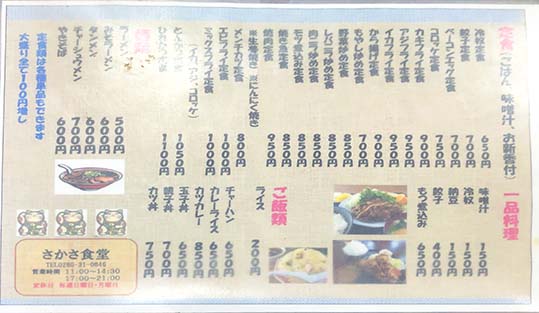 定食(ごはん、味噌汁、お新香付)
冷奴定食 650円
餃子定食 700円
ベーコンエッグ定食 700円
コロッケ定食 750円
カキフライ定食 900円
アジフライ定食 900円
イカフライ定食 900円
から揚げ定食 900円
もやし炒め定食 700円
野菜炒め定食 850円
肉ニラ炒め定食 850円
レバニラ炒め定食 850円
モツ煮込み定食 850円
焼き魚定食 850円
焼肉定食 950円
※生姜焼き ※にんにく焼き
メンチカツ定食 800円
エビフライ定食 1000円
ミックスフライ定食 1000円
(イカ、アジ、コロッケ)
とんかつ定食 1050円
ひれかつ定食 1100円
麺類
ラーメン 500円
みそラーメン 600円
タンメン 600円
チャーシューメン 700円
やきそば 600円
定食類は各種単品もできます
大盛り全て100円増し
一品料理
味噌汁 150円
冷奴 150円
納豆 150円
餃子 400円
もつ煮込み 650円
ご飯類
ライス 200円
チャーハン 650円
カレーライス 650円
カツカレー 850円
玉子丼 650円
親子丼 700円
カツ丼 750円
さかさ食堂
TEL.0280-31-0646
営業時間 11:00~14:30
17:00~21:00
定休日 毎週日曜日・月曜日